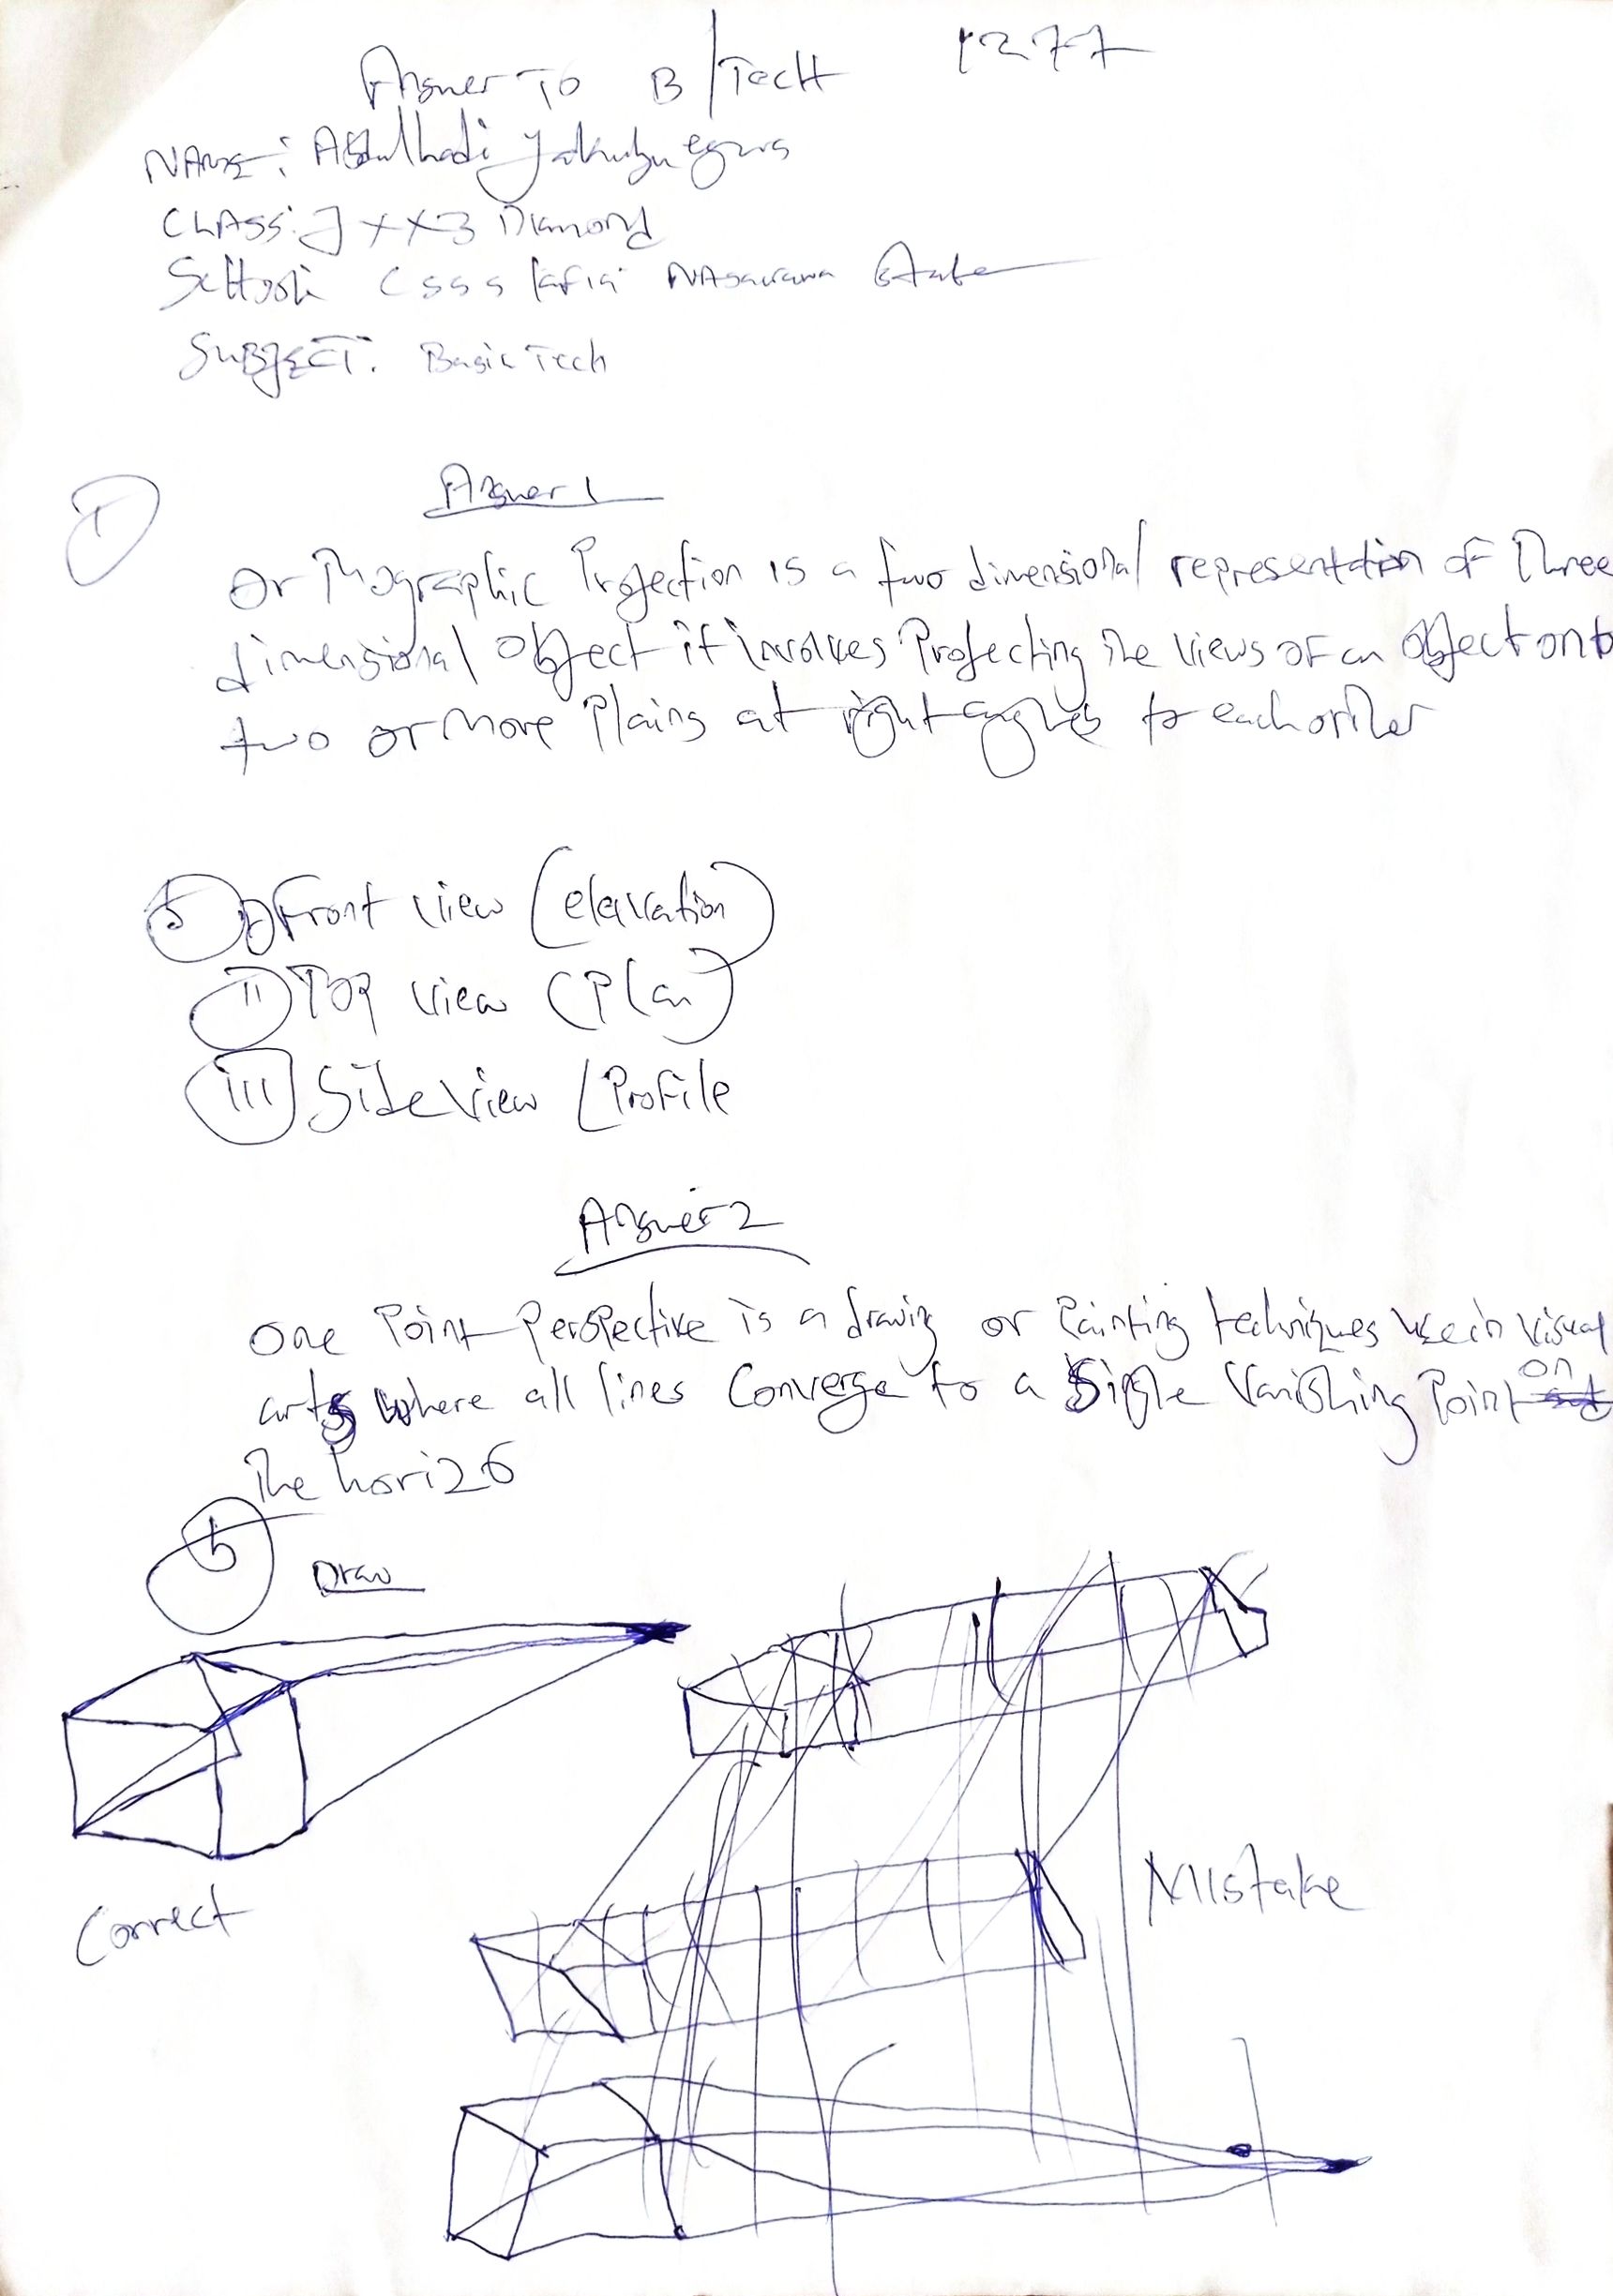 Answer To B/TecH 1277
NAME: Abdulhadi Yakubu
CLASS: J 3 Diamond
ScHool: Csss lafia NAsarawa State
SUBJECT: Basic Tech
Answer 1
1
Orthographic Projection is a two dimensional representation of Three
dimensional object it involves Projecting the views of an object onto
two or more Plains at right angles to each other
b i) Front view (elavation)
ii) Top view (Plan)
iii) Side view (Profile
Answer 2
One Point Perspective is a drawing or Painting techniques use in visual
arts where all lines Converge to a Single Vanishing Point on
The horizo
b Draw
Correct
Mistake